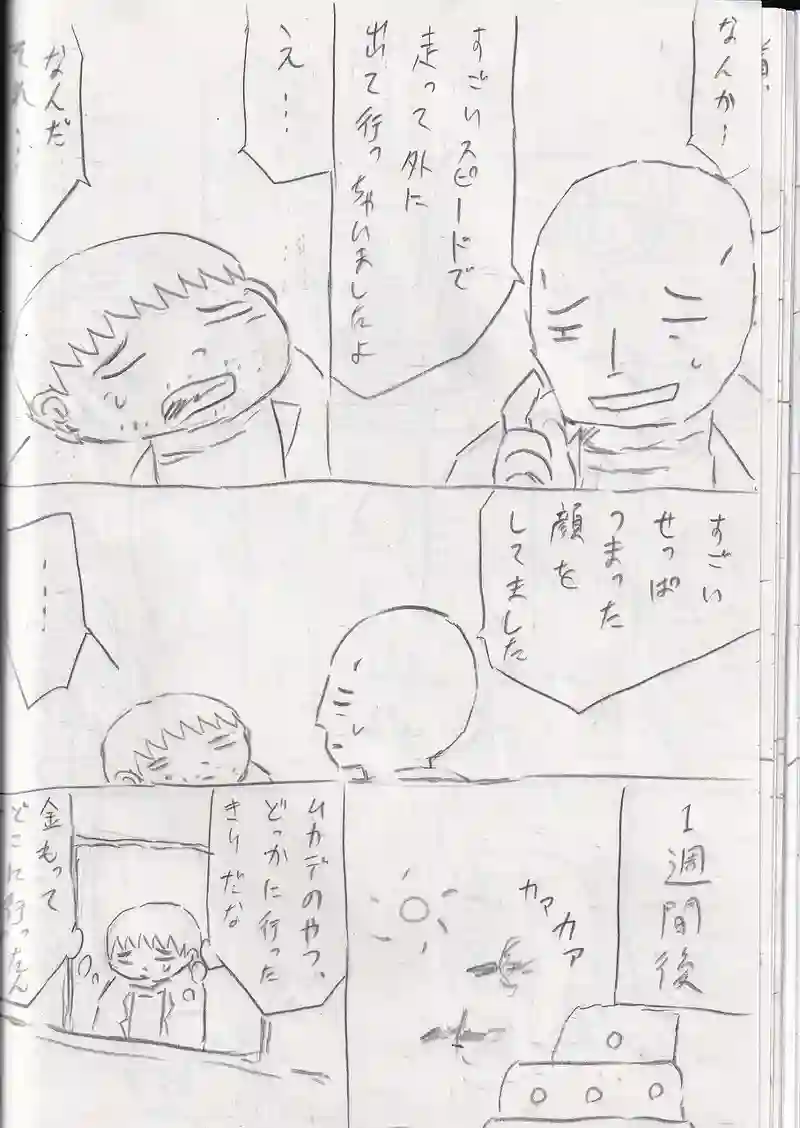 なんか…
すごいスピードで
走って外に
出て行っちゃいましたよ
え…
なんだ
それ…
すごい
せっぱ
つまった
顔を
してました
…
1週間後
カァ
カァ
ムカデのやつ、
どっかに行った
きりだな
金もって
どこに行ったん